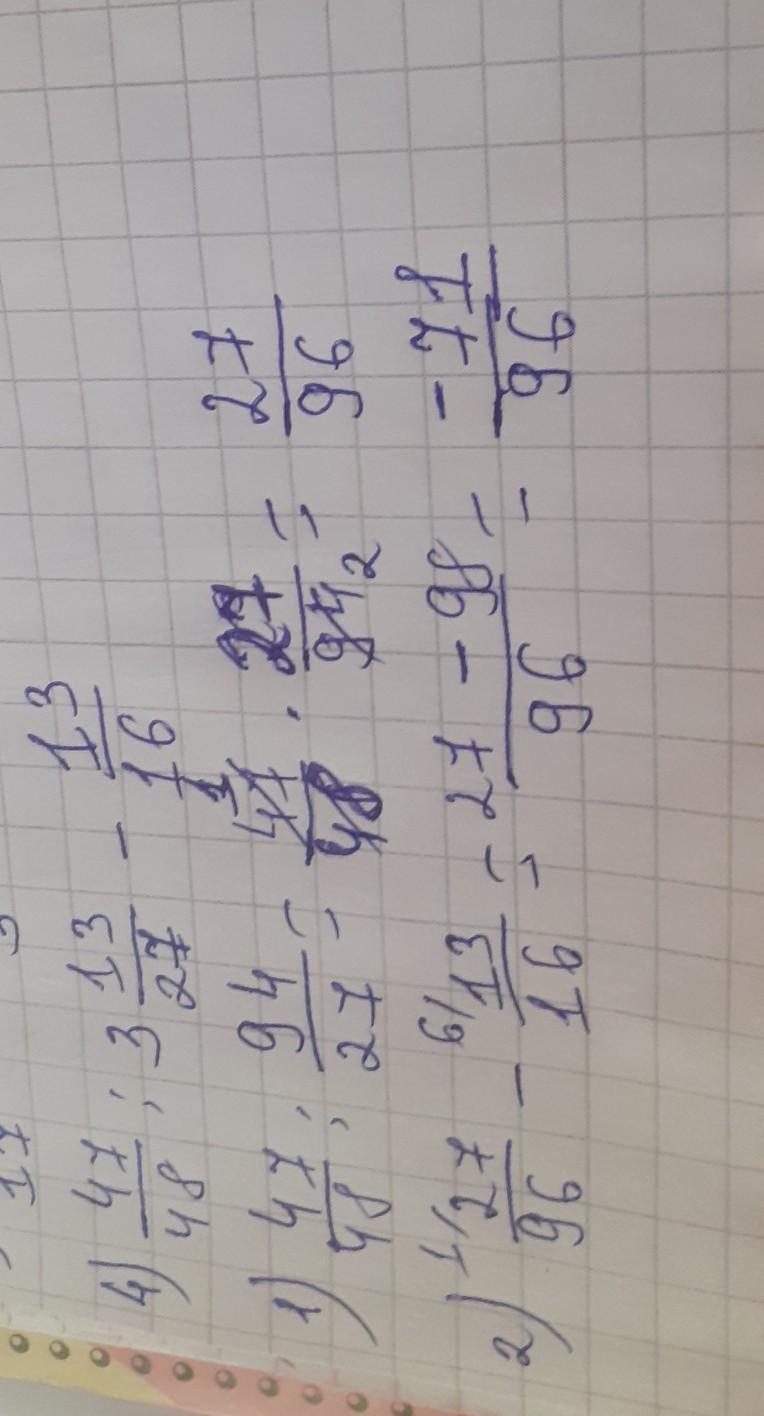 4) 47/48 : 3 13/27 - 13/16
1) 47/48 : 94/27 = 47/48 · 27/94 = 27/96
2) 27/96 - 13/16 = (27 - 98)/96 = -71/96